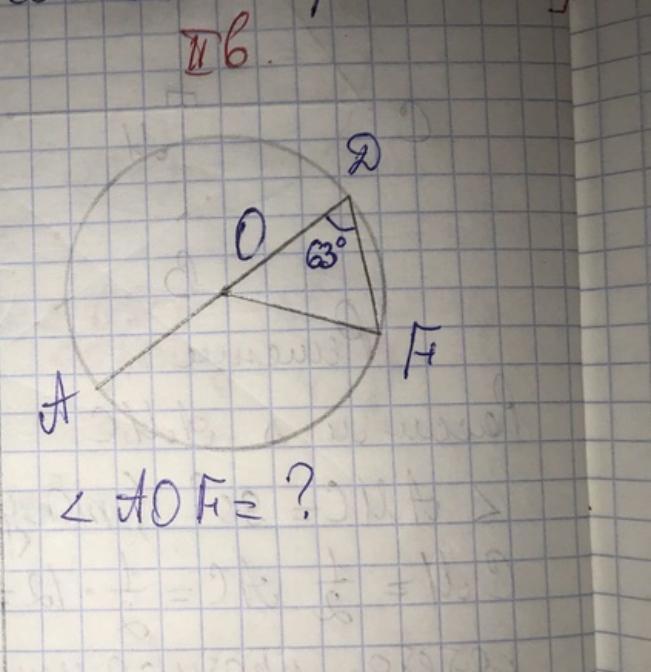 II в.
D
O
63°
F
A
< AOF = ?